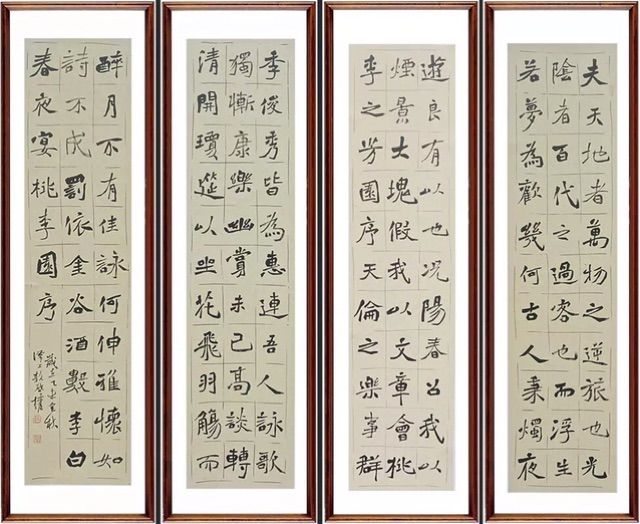 夫天地者萬物之逆旅也光
陰者百代之過客也而浮生
若夢為歡幾何古人秉燭夜
遊良有以也况陽春召我以
煙景大塊假我以文章會桃
李之芳園序天倫之樂事群
季俊秀皆為惠連吾人詠歌
獨慚康樂幽賞未已高談轉
清開瓊筵以坐花飛羽觴而
醉月不有佳詠何伸雅懷如
詩不成罰依金谷酒數李白
春夜宴桃李園序